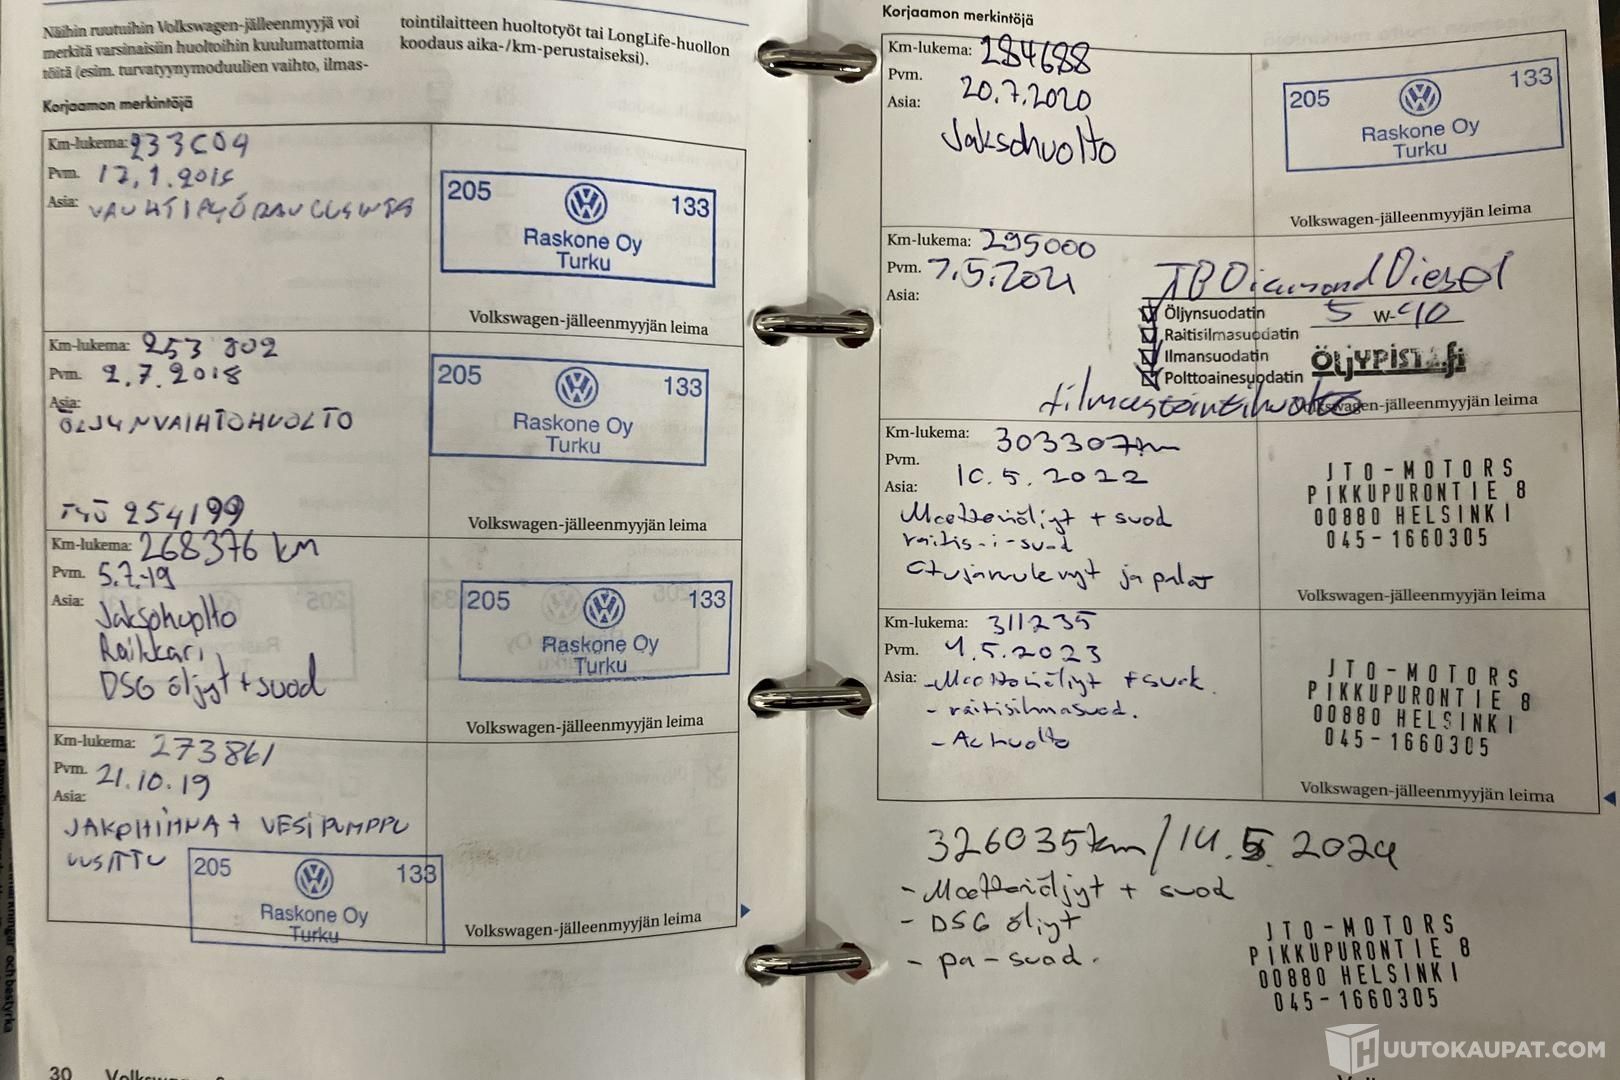 Näihin ruutuihin Volkswagen-jälleenmyyjä voi
merkitä varsinaisiin huoltoihin kuulumattomia
töitä (esim. turvatyynymoduulien vaihto, ilmas-
tointilaitteen huoltotyöt tai LongLife-huollon
koodaus aika-/km-perustaiseksi).
Korjaamon merkintöjä
Km-lukema:
Pvm.
Asia:
205 133
Raskone Oy
Turku
Volkswagen-jälleenmyyjän leima
Km-lukema: 253 802
Pvm. 2.7.2018
Asia:
ÖLJYNVAIHTOHUOLTO
TYÖ 254199
205 133
Raskone Oy
Turku
Volkswagen-jälleenmyyjän leima
Km-lukema: 268376 km
Pvm. 5.7.-19
Asia: Jaksohuolto
Raikkari,
DSG öljyt + suod
205 133
Raskone Oy
Turku
Volkswagen-jälleenmyyjän leima
Km-lukema: 273861
Pvm. 21.10.19
Asia:
JAKOHIHNA + VESIPUMPPU
UUSITTU
205 133
Raskone Oy
Turku
Volkswagen-jälleenmyyjän leima
30
Korjaamon merkintöjä
Km-lukema: 284688
Pvm. 20.7.2020
Asia: Jaksohuolto
205 133
Raskone Oy
Turku
Volkswagen-jälleenmyyjän leima
Km-lukema: 295000
Pvm. 7.5.2021
Asia:
TB Diamond Diesel
Öljynsuodatin 5 W-40
Raitisilmasuodatin
Ilmansuodatin
Polttoainesuodatin
ÖLJYPISTE.fi
+ilmastointihuolto
Volkswagen-jälleenmyyjän leima
Km-lukema: 303307km
Pvm. 10.5.2022
Asia:
Moottoriöljyt + suod
raitis-i-suod
Etujarrulevyt ja palat
JTO-MOTORS
PIKKUPURONTIE 8
00880 HELSINKI
045-1660305
Volkswagen-jälleenmyyjän leima
Km-lukema: 311235
Pvm. 4.5.2023
Asia: -Moottoriöljyt + suod.
- raitisilmasuod.
- AC huolto
JTO-MOTORS
PIKKUPURONTIE 8
00880 HELSINKI
045-1660305
Volkswagen-jälleenmyyjän leima
326035km/14.5.2024
- Moottoriöljyt + suod
- DSG öljyt
- pa-suod.
JTO-MOTORS
PIKKUPURONTIE 8
00880 HELSINKI
045-1660305
HUUTOKAUPAT.COM